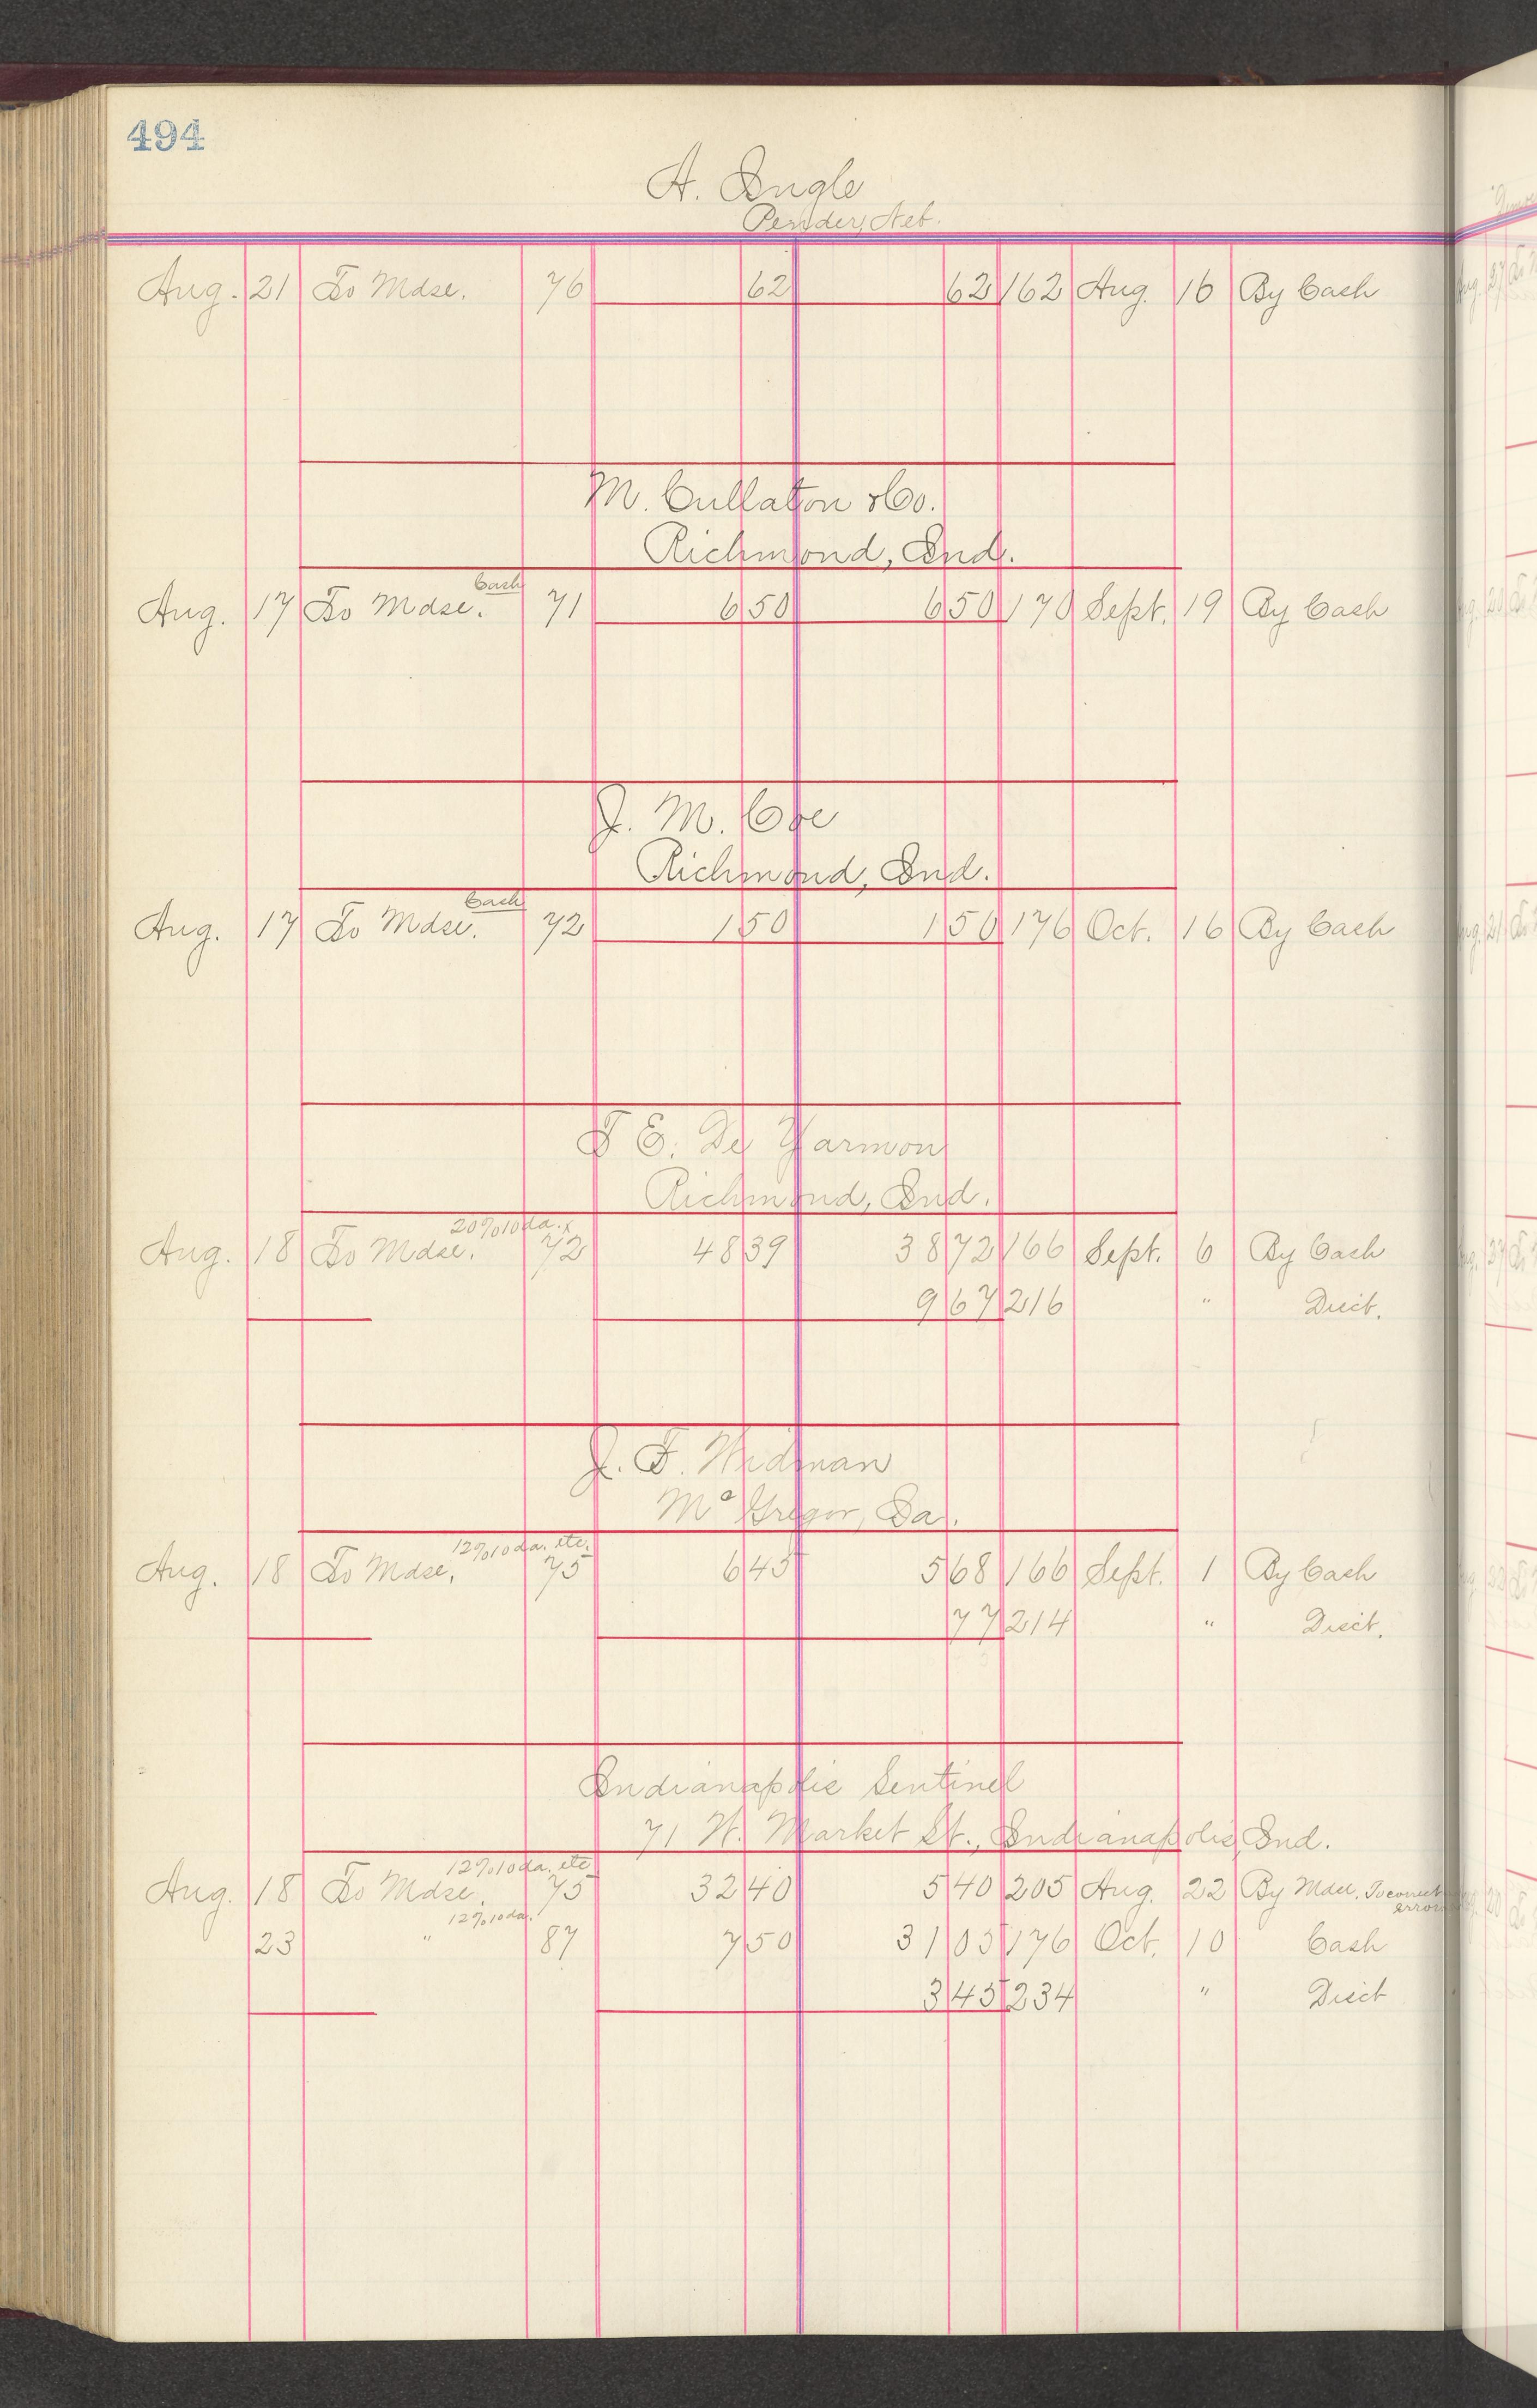 494
A. Ingle
Pender, Neb.
Aug. 21 To Mdse. 76 62 62 162 Aug. 16 By Cash
M. Cullaton & Co.
Richmond, Ind.
Cash
Aug. 17 To Mdse. 71 6 50 6 50 170 Sept. 19 By Cash
J. M. Coe
Richmond, Ind.
Cash
Aug. 17 To Mdse. 72 1 50 1 50 176 Oct. 16 By Cash
T E. De Yarmon
Richmond, Ind.
20% 10 da. x
Aug. 18 To Mdse. 72 48 39 38 72 166 Sept. 6 By Cash
9 67 216 " Disct.
J. F. Widman
McGregor, Ia.
12% 10 da. etc.
Aug. 18 To Mdse. 75 6 45 5 68 166 Sept. 1 By Cash
77 214 " Disct.
Indianapolis Sentinel
71 W. Market St., Indianapolis, Ind.
12% 10 da. etc
Aug. 18 To Mdse. 75 32 40 5 40 205 Aug. 22 By Mdse. To correct error
12% 10 da.
23 " 87 7 50 31 05 176 Oct. 10 Cash
3 45 234 " Disct